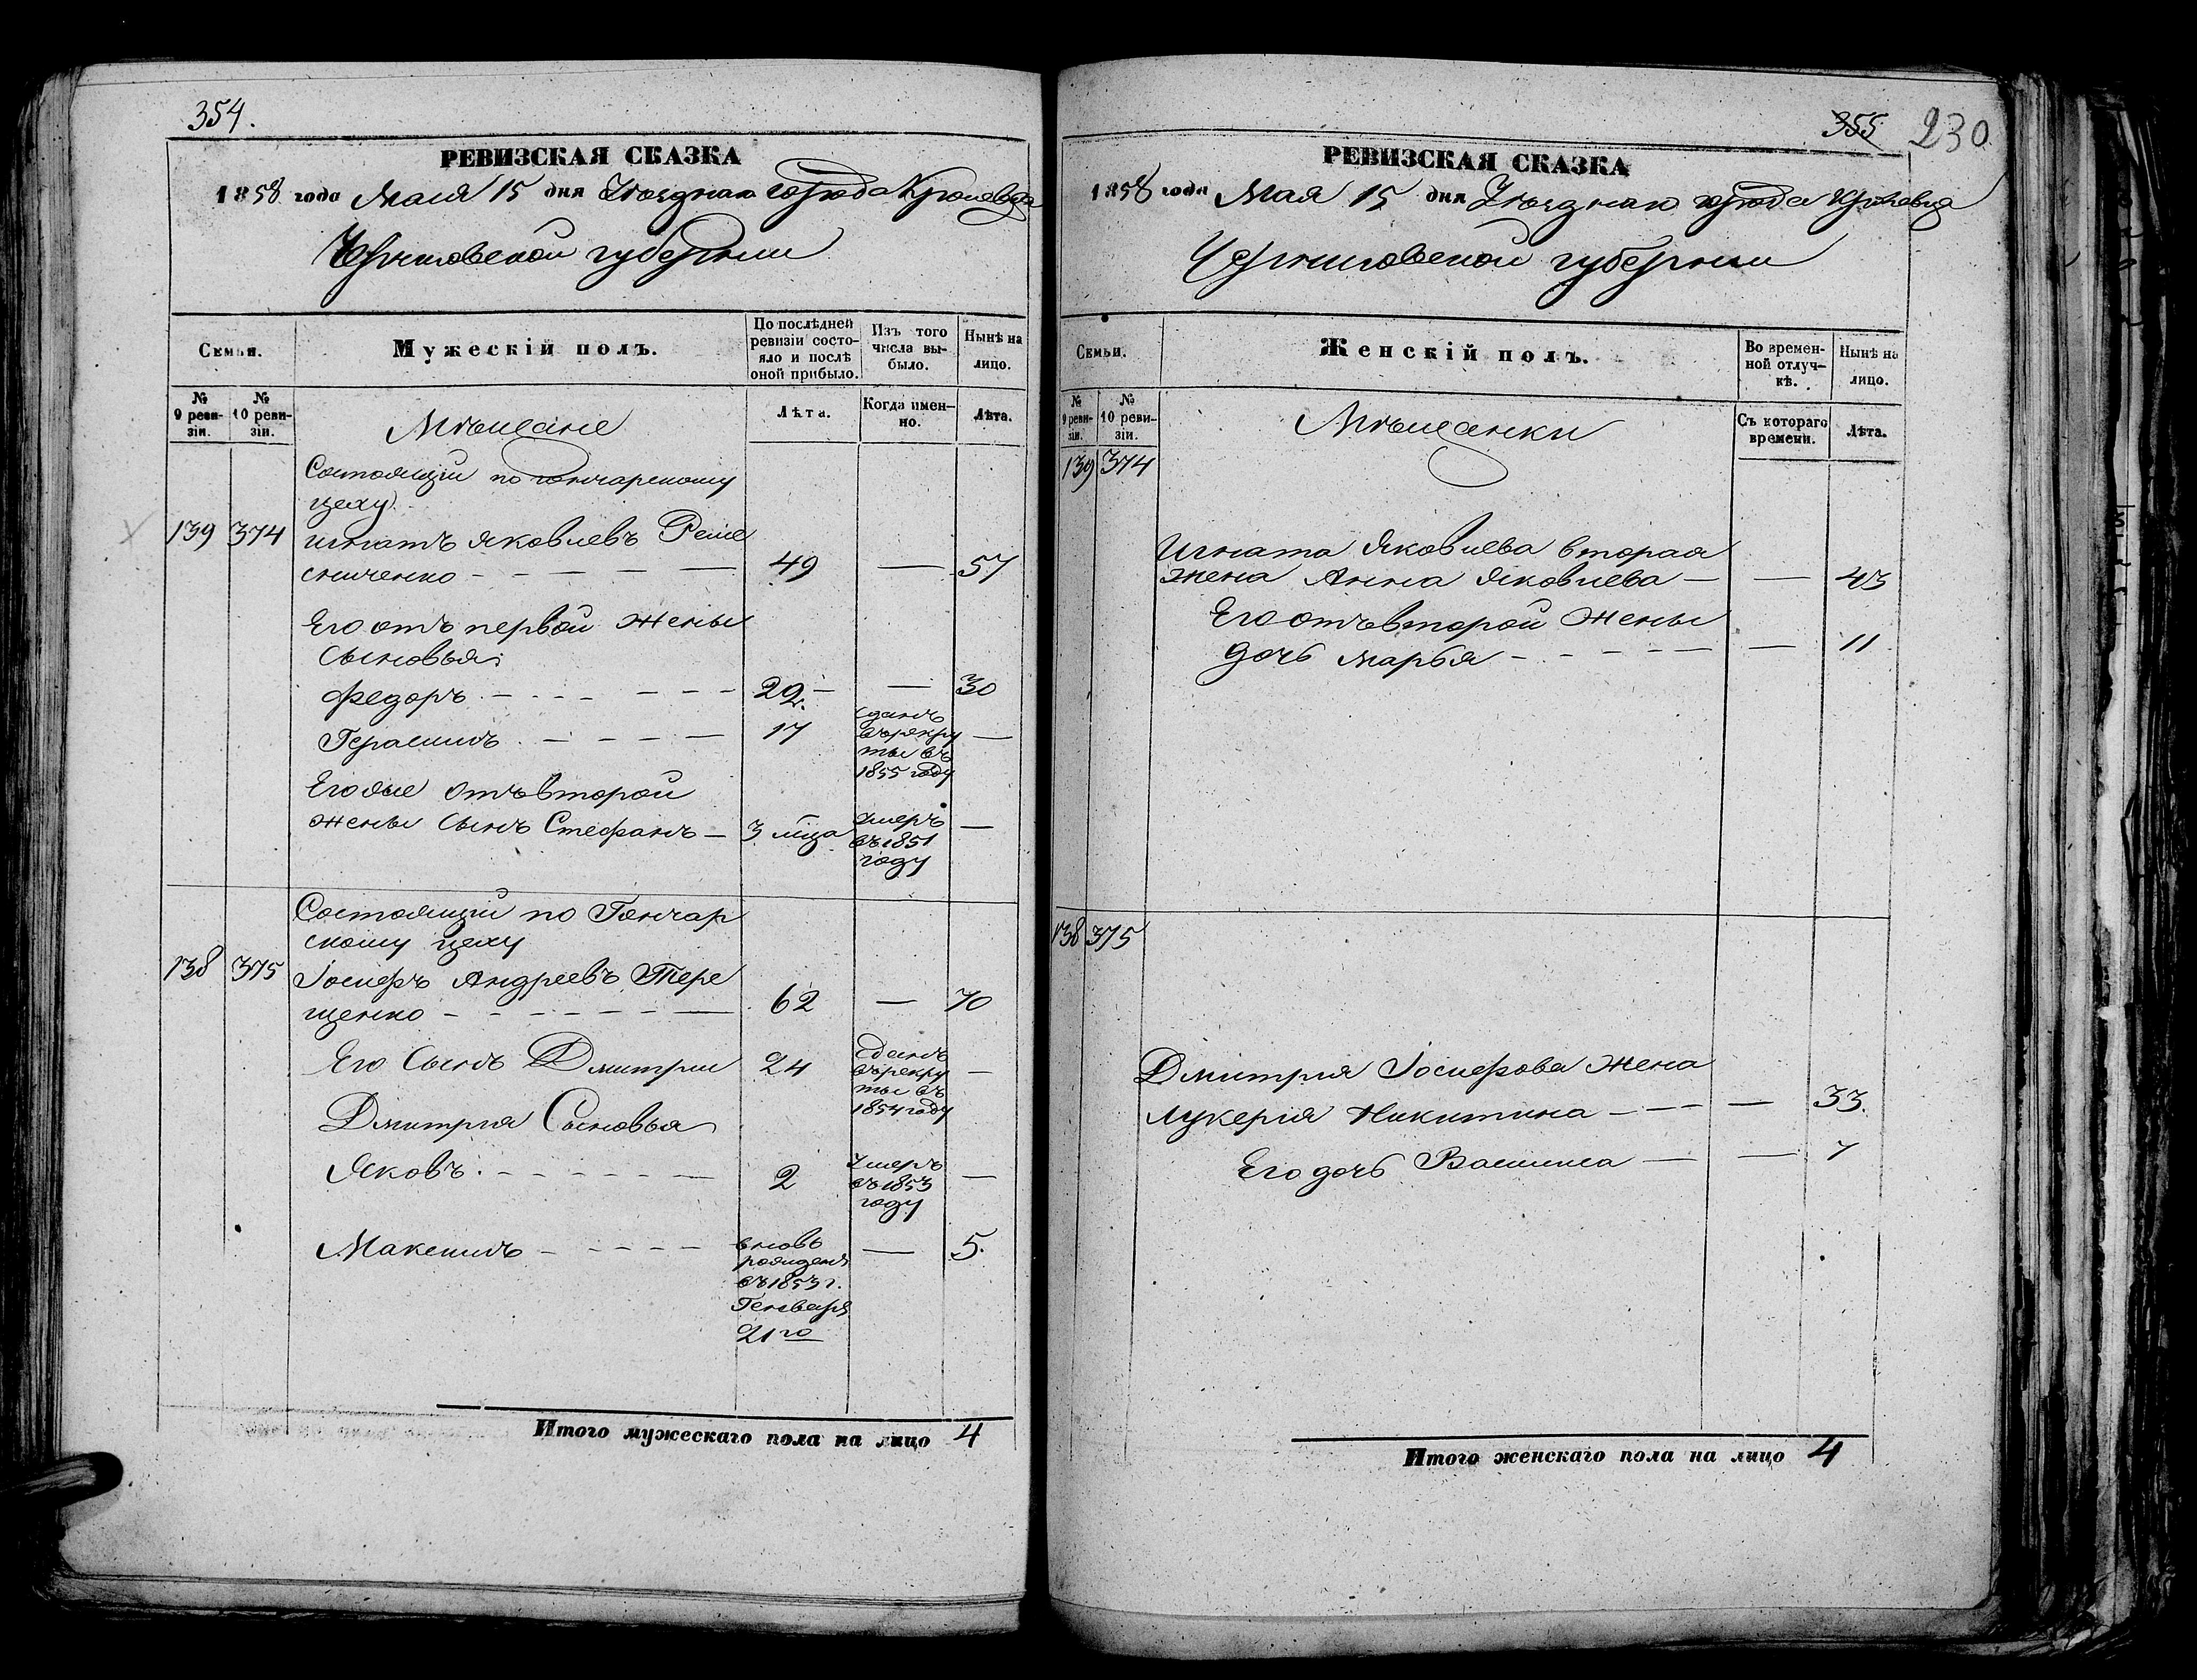 354.
РЕВИЗСКАЯ СКАЗКА
1858 года Маія 15 дня Уѣзднаго города Кролевца
Черниговской губерніи
Семьи.
Мужескій полъ.
По послѣдней ревизіи состояло и послѣ оной прибыло.
Изъ того числа выбыло.
Нынѣ на лицо.
№ 9 ревизіи.
№ 10 ревизіи.
Мѣщане
Лѣта.
Когда именно.
Лѣта.
Состоящій по гончарскому
цеху
139 374 Игнатъ Яковлевъ Реше
сниченко 49 — 57
Его отъ первой жены
сыновья
Федоръ 22 — 30
Герасимъ 17 сданъ въ рекруты въ 1855 году —
Его же отъ второй
жены сынъ Стефанъ — 3 мца умеръ въ 1851 году —
Состоящій по Гончар
скому цеху
138 375 Іосифъ Андреевъ Тере
щенко 62 — 70
Его сынъ Дмитрій 24 сданъ въ рекруты въ 1854 году —
Дмитрія Сыновья
Яковъ 2 умеръ въ 1853 году —
Максимъ вновь рожденъ въ 1853 г. Генваря 21го — 5.
Итого мужескаго пола на лицо 4
355 230
РЕВИЗСКАЯ СКАЗКА
1858 года Мая 15 дня Уѣзднаго города Кролевца
Черниговской губерніи
Семьи.
Женскій полъ.
Во временной отлучкѣ.
Нынѣ на лицо.
№ 9 ревизіи.
№ 10 ревизіи.
Мѣщанки
Съ котораго времени.
Лѣта.
139 374
Игната Яковлева вторая
жена Анна Яковлева — — 43
Его отъ второй жены
дочь Марья — 11
138 375
Дмитрія Іосифова жена
Лукерія Никитина — 33.
Его дочь Васили­са — — 7
Итого женскаго пола на лицо 4